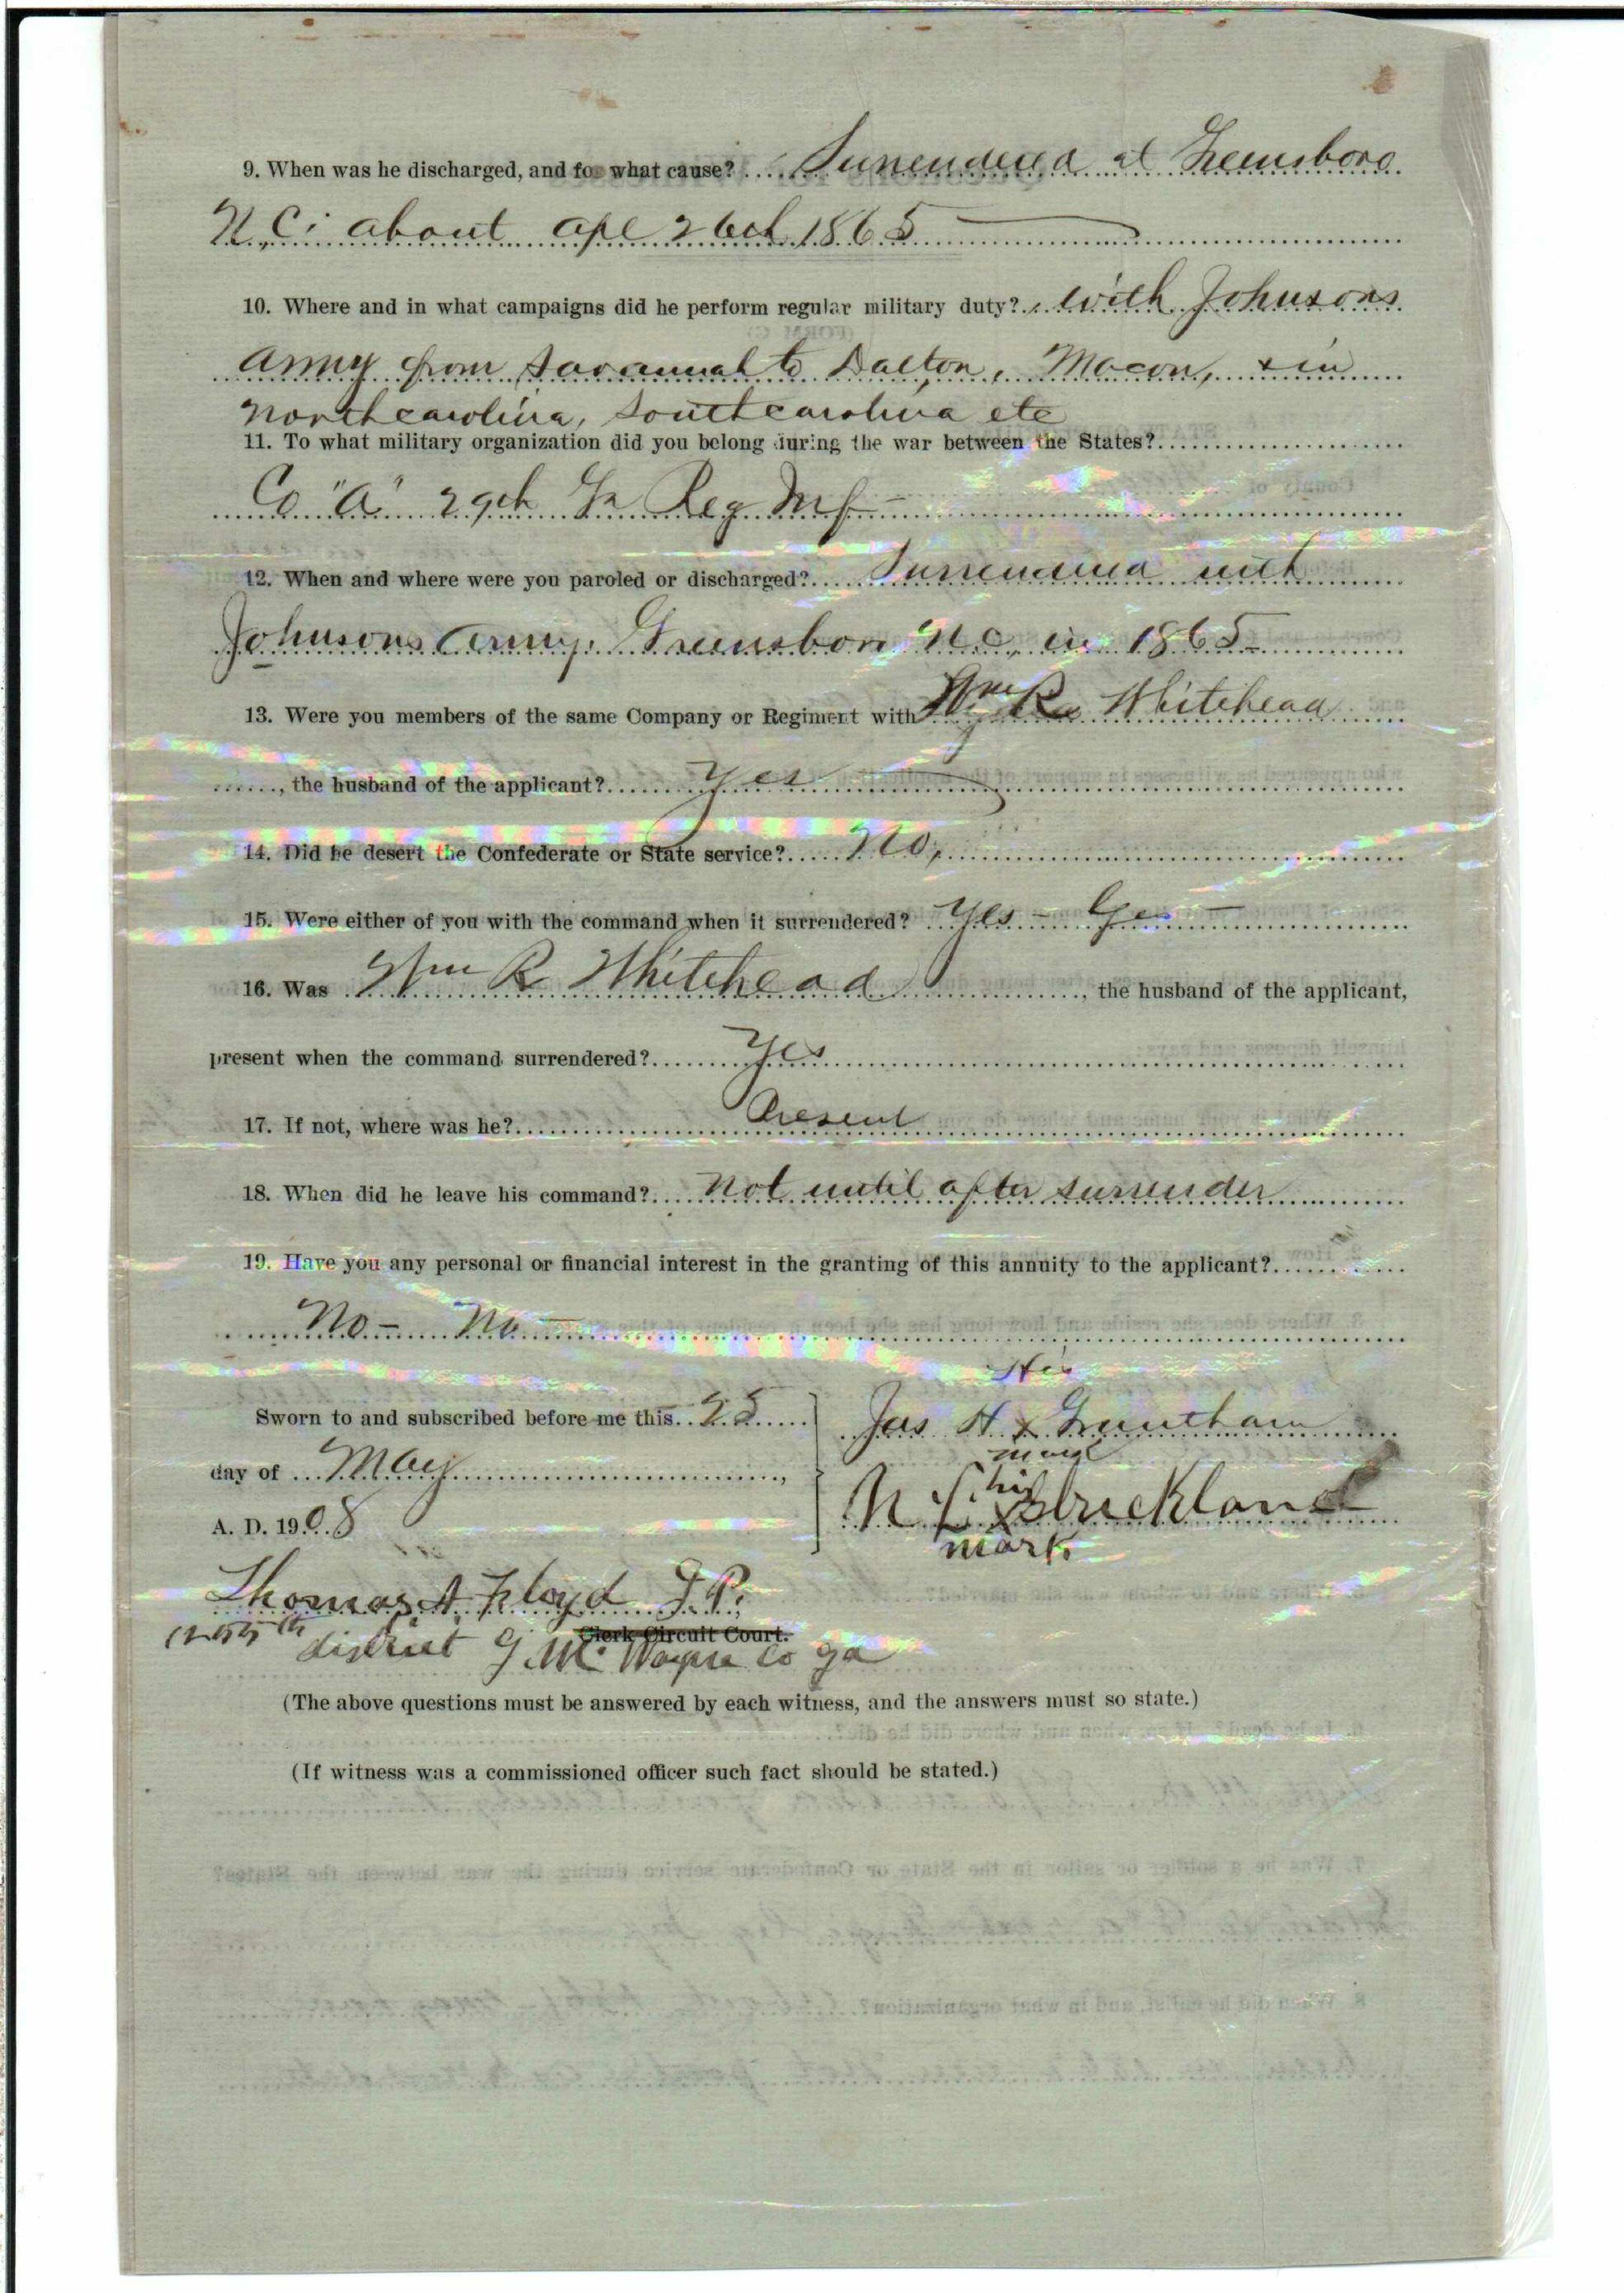 9. When was he discharged, and for what cause? Surrendered at Greensboro
N.C. about apl 26th 1865
10. Where and in what campaigns did he perform regular military duty? with Johnsons
army from Savannah to Dalton, Macon, & in
North carolina, South carolina etc
11. To what military organization did you belong during the war between the States?
Co "A" 29th Ga Reg Inf
12. When and where were you paroled or discharged? Surrendered with
Johnsons army. Greensboro N.C. in 1865
13. Were you members of the same Company or Regiment with Wm R Whitehead
, the husband of the applicant? yes
14. Did he desert the Confederate or State service? No,
15. Were either of you with the command when it surrendered? Yes - Yes -
16. Was Wm R Whitehead, the husband of the applicant,
present when the command surrendered? Yes
17. If not, where was he? Present
18. When did he leave his command? Not until after surrender
19. Have you any personal or financial interest in the granting of this annuity to the applicant?
No - No -
His
Sworn to and subscribed before me this 25 Jas H x Grantham
mark
day of May,
his
N. x Strickland
A. D. 1908
mark
Thomas A Floyd J.P.
Clerk Circuit Court.
district G.M. Wayne Co ga
(The above questions must be answered by each witness, and the answers must so state.)
(If witness was a commissioned officer such fact should be stated.)